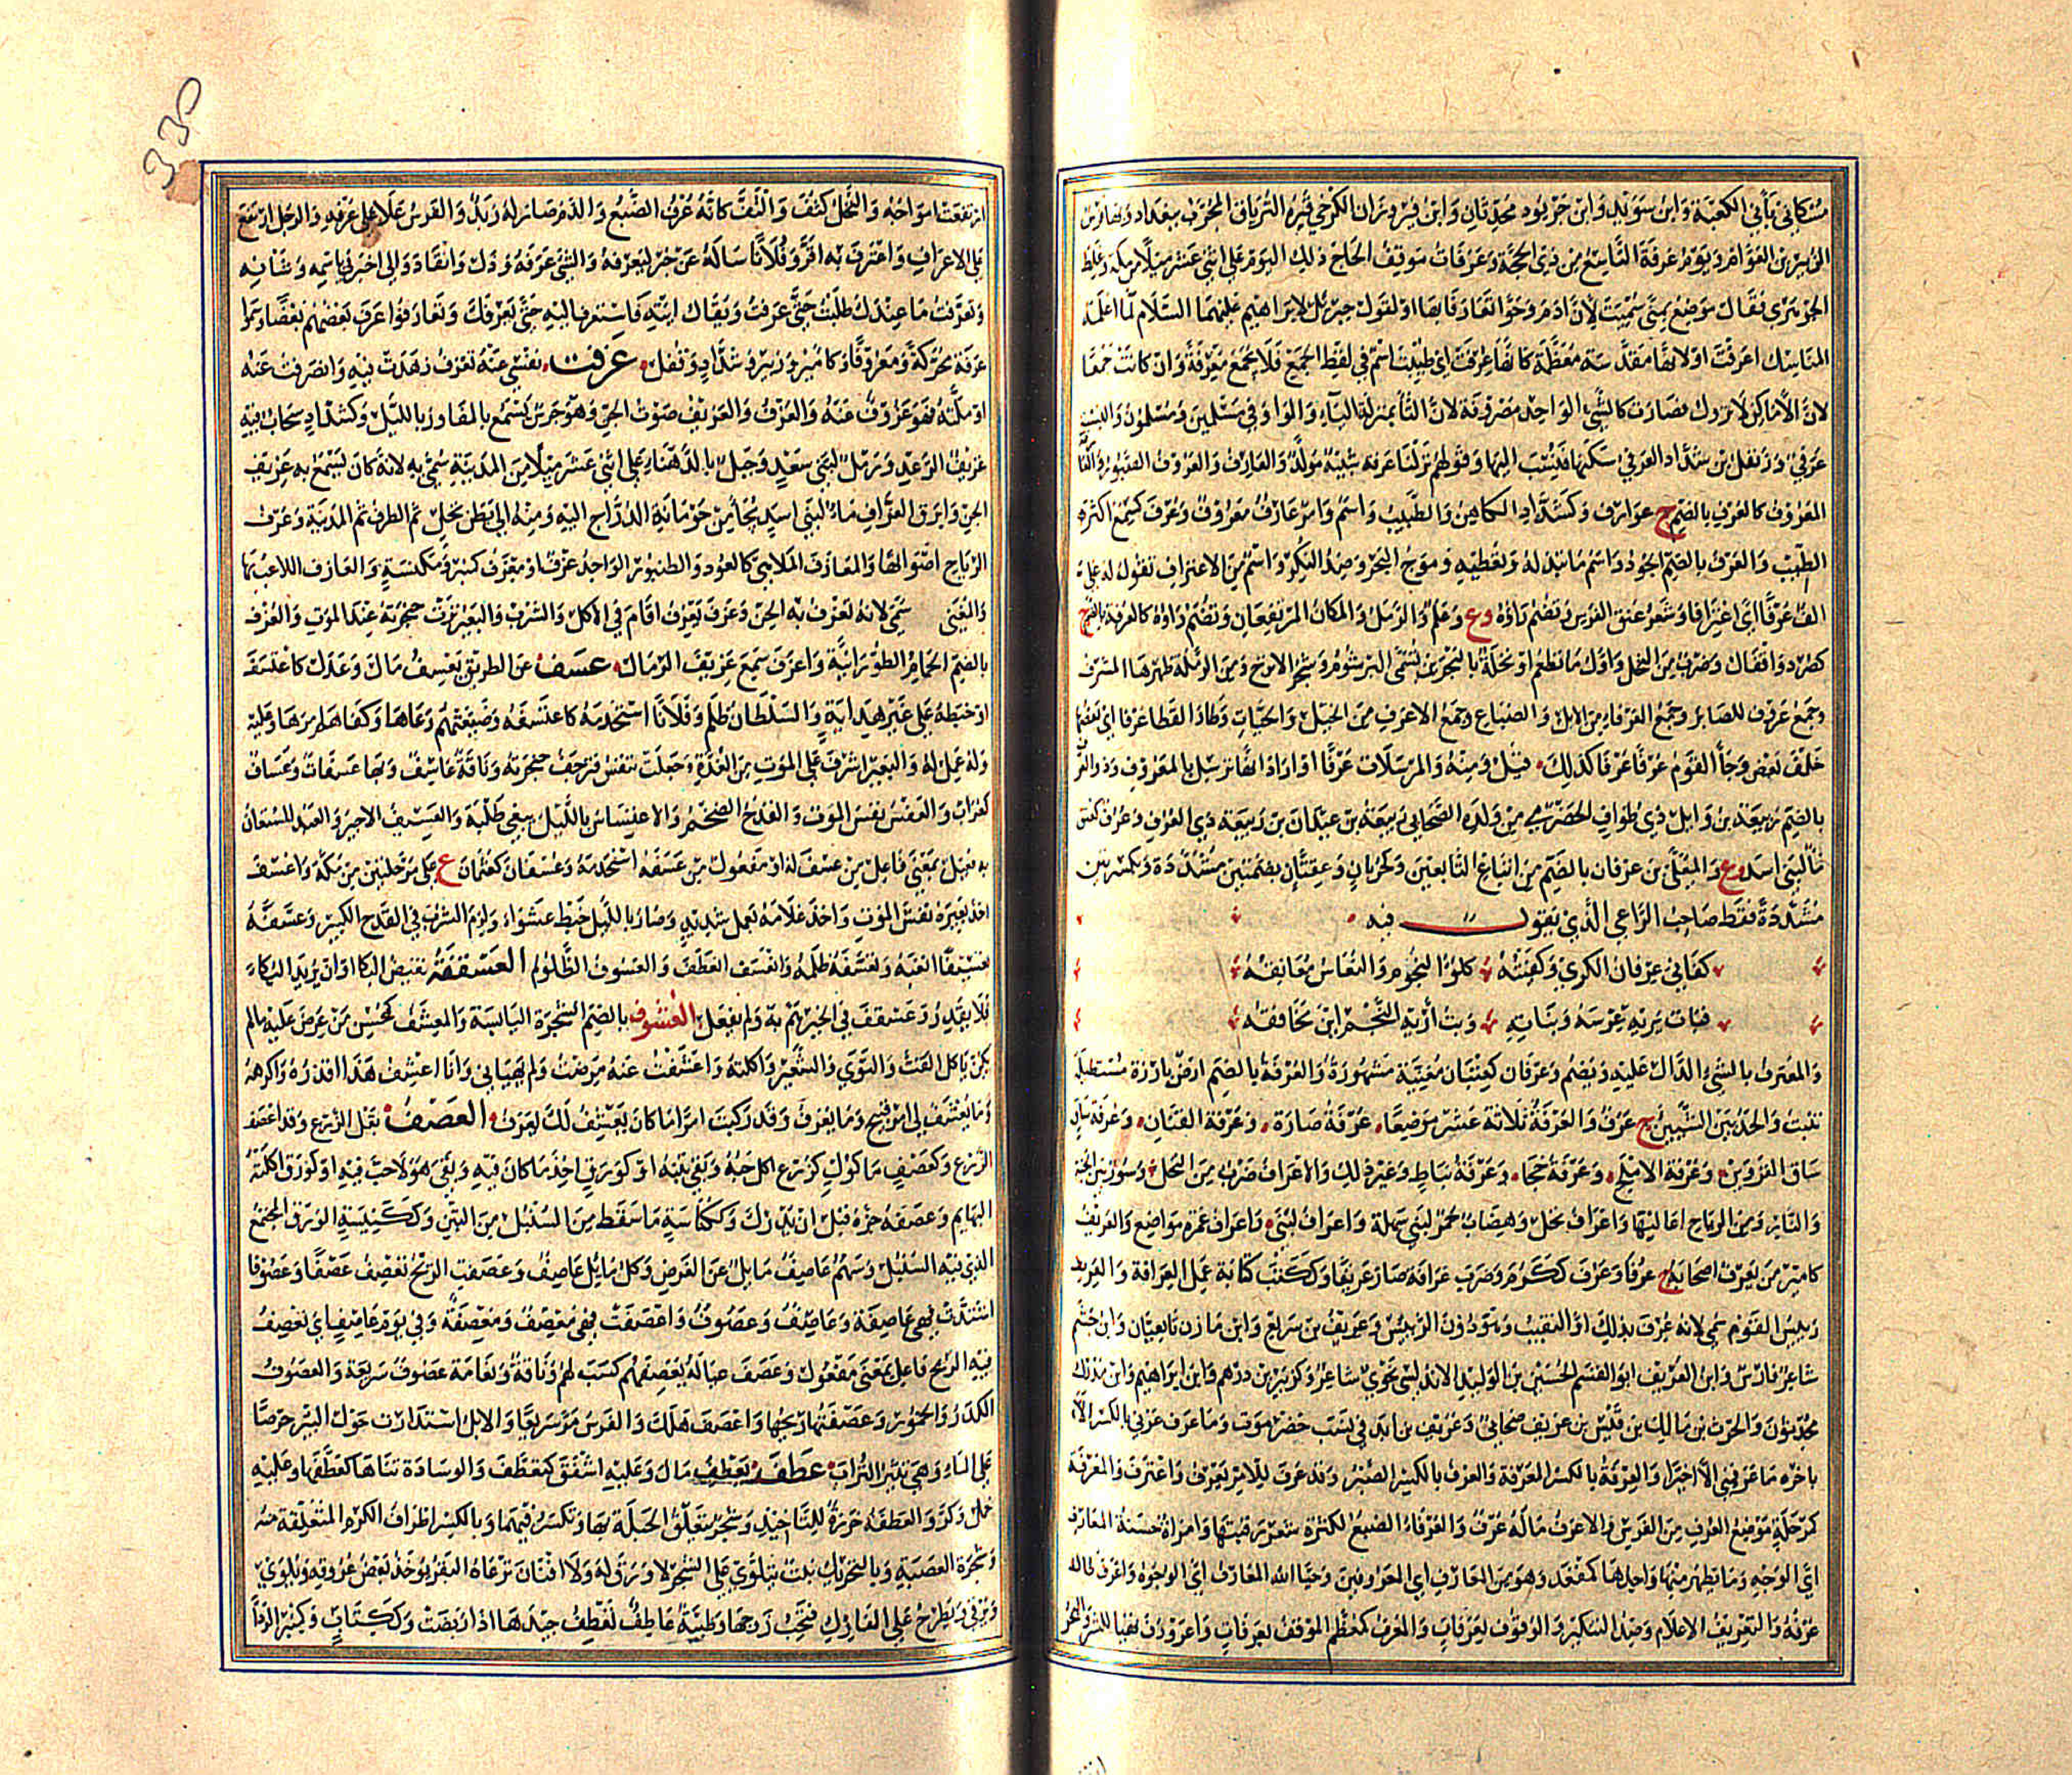 الزبير بن العوام ويوم عرفة التاسع من ذي الحجة وعرفات موقف الحاج ذلك اليوم على اثني عشر ميلا من مكة وغلط
الجوهري فقال موضع بمنى سميت لأن آدم وحوا تعارفا بها او لقول جبريل لابراهيم عليهما السلام لما اعلمه
المناسك اعرفت او لانها مقدسة معظمة كانها عرفت اي طيبت اسم في لفظ الجمع فلا يجمع معرفة وان كانت جمعا
لان الأماكن لا تزول فصارت كالشيء الواحد مصروفة لان التا بمنزلة الياء والواو في مسلمين ومسلمون والنسبة
عرفي وزنفل بن شداد العرفي سكنها فنسب اليها وقولهم نزلنا عرفة شبيه مولد والعارف والعروف الصبور
المعروف كالعرف بالضم ج عوارف وكشداد الكاهن والطبيب واسم وامر عارف معروف وعرف كسمع اكثر
الطيب والعرف بالضم الجود واسم ما تبذله وتعطيه وموج البحر وضد النكر واسم من الاعتراف تقول له علي
الف عرفا اي اعترافا وشعر عنق الفرس وتضم راؤه وع وعلم والرمل والمكان المرتفعان وتضم راؤه كالعرفة بالضم ج
كصرد واقفال وضرب من النخل واول ما تطعم او نخلة بالبحرين تسمى البرشوم وشجر الاترج ومن الرملة ظهرها المشرف
وجمع عروف للصابر وجمع العرفاء من الابل والضباع وجمع الاعرف من الخيل والحيات وطار القطا عرفا اي بعضها
خلف بعض وجا القوم عرفا عرفا كذلك قيل ومنه والمرسلات عرفا او اراد انها ترسل بالمعروف وذو العرف
بالضم ربيعة بن وايل ذي طواف الحضرمي من ولده الصحابي ربيعة بن عيدان بن ربيعة ذي العرف وعرف كعنق
ما لبني اسد وع والمعلى بن عرفان بالضم من اتباع التابعين وكجربان وعفتان بضمتين مشددة وبكسرتين
مشددة فقط صاحب الراعي الذي يقول فيه
كفاني عرفان الكرى وكفيته كلوء النجوم والنعاس معانقه
فبات يريه عرسه وبناته وبت أريه النجم اين مخافقه
والمعترف بالشيء الدال عليه ويضم وعرفان كعتبان مغنية مشهورة والعرفة بالضم ارض بارزة مستطيلة
تنبت والحد بين الشيئين ج عرف والعرفة ثلاثة عشر موضعا عرفة صارة وعرفة القنان وعرفة ساق
ساق الفروين وعرفة الاملح وعرفة خجا وعرفة نباط وغير ذلك والاعراف ضرب من النخل وسور بين الجنة
والنار ومن الرياح اعاليها واعراف نخل وهضاب حمر لبني سهلة واعراف لبنى واعراف غمرة مواضع والعريف
كامير من يعرف اصحابه ج عرفا وعرف ككرم وضرب عرافة صار عريفا وككتب كتابة عمل العرافة والعريف
رييس القوم سمي لانه عرف بذلك او النقيب وهو دون الرييس وعريف بن سريع وابن مازن تابعيان وابن جشم
شاعر فارس وابن العريف ابو القسم الحسين بن الوليد الاندلسي نحوي شاعر وكزبير بن درهم وابن ابراهيم وابن مدرك
محدثون والحرث بن مالك بن قيس بن عريف صحابي وعريف بن ابد في نسب حضرموت وما عرف عرفي بالكسر الا
باخرة ما عرفني الا اخيرا والعرفة بالكسر المعرفة والعرف بالكسر الصبر وقد عرف للامر يعرف واعترف والمعرفة
كمرحلة موضع العرف من الفرس والاعرف ما له عرف والعرفاء الضبع لكثرة شعر رقبتها وامراة حسنة المعارف
اي الوجه وما يظهر منها واحدها كمقعد وهو من المعارف اي المعروفين وحيا الله المعارف اي الوجوه واعرف طال
عرفه والتعريف الاعلام وضد التنكير والوقوف بعرفات والمعرف كمعظم الموقف بعرفات واعرورف تهيا للشر والبحر
ارتفعت امواجه والنخل كثف والتف كانه عرف الضبع والدم صار له زبد والفرس علا على عرفه والرجل ارتفع
على الاعراف واعترف به اقر وفلانا ساله عن خبر ليعرفه والشي عرفه وذل وانقاد والي اخبرني باسمه وشانه
وتعرفت ما عندك طلبت حتى عرفت ويقال ايته فاستعرف اليه حتى يعرفك وتعارفوا عرف بعضهم بعضا وسموا
عرفة محركة ومعروفا وكامير وزبير وشداد وقفل عزفت نفسي عنه تعزف زهدت فيه وانصرفت عنه
او ملته فهو عزوف عنه والعزف والعزيف صوت الجن وهو جرس يسمع بالمفاوز بالليل وكشداد سحاب فيه
عزيف الرعد ورمل لبني سعد وجبل بالدهناء على اثني عشر ميلا من المدينة سمي به لانه كان يسمع به عزيف
الجن وابرق العزاف ماء لبني اسد يجأ من حومانة الدراج اليه ومنه الى بطن نخل ثم الطرف ثم المدينة وعزف
الرياح اصواتها والمعازف الملاهي كالعود والطنبور الواحد عزف او معزف كمنبر ومكنسة والعازف اللاعب بها
والمغني سمي لانه تعزف به الجن وعزف يعزف اقام في الاكل والشرب والبعير نزت حنجرته عند الموت والعزف
بالضم الحمام الطورانية واعزف سمع عزيف الرمال عسف عن الطريق يعسف مال وعدل كاعتسف
او خبطه على غير هداية والسلطان ظلم وفلانا استخدمه كاعتسفه وضيعتهم رعاها وكفاهم امرها وعليه
وله عمل له والبعير اشرف على الموت من الغدة وجعلت تنفس فترجف حنجرته وناقة عاسف وبها عسفات وعساف
كغراب والعسف نفس الموت والقدح الضخم والاعتساس بالليل يبغي طلبة والعسيف الاجير والعبد المستعان
به فعيل بمعنى فاعل من عسف له او مفعول من عسفه استخدمه وعسفان كعثمان ع على مرحلتين من مكة واعسف
اخذ بعيره نفس الموت واخذ غلامه بعمل شديد وسار بالليل خبط عشواء ولزم الشرب في القدح الكبير وعسفه
تعسيفا اتعبه وتعسفه ظلمه وانعسف انعطف والعسوف الظلوم العسقفة نقيض البكا او ان يريد البكاء
فلا يقدر وعسقف في الخير هم به ولم يفعل العشوف بالضم الشجرة اليابسة والمعشف كمحسن من عرض عليه ما لم
يكن ياكل القت والنوى والشعير واكلته واعشفت عنه مرضت ولم يهنابي وانا اعشف هذا اقذره واكرهه
وما يعشف لي امر قبيح وما يعرف وقد ركبت امرا ما كان يعشف لك يعرف العصف بقل الزرع وقد اعصف
الزرع وكعصف ماكول كزرع اكل حبه وبقي تبنه او كورق اخذ ما كان فيه وبقي هو لا حب فيه او كورق اكلته
البهايم وعصفه جزه قبل ان يدرك وككناسة ما سقط من السنبل من التبن وككنيسة الورق المجتمع
الذي فيه السنبل وسهم عاصف مايل عن الغرض وكل مايل عاصف وعصفت الريح تعصف عصفا وعصوفا
اشتدت فهي عاصفة وعاصف وعصوف واعصفت فهي معصف ومعصفة وفي يوم عاصف اي تعصف
فيه الريح فاعل بمعنى مفعول وعصف عياله يعصفهم كسب لهم وناقة ونعامة عصوف سريعة والعصوف
الكدر والخمور وعصفتها ريحها واعصف هلك والفرس مر سريعا والابل استدارت حول البير حرصا
على الماء وهي تثير التراب عطف يعطف مال وعليه اشفق كتعطف والوسادة ثناها كعطفها وعليه
حمل وكر والعطفة خرزة للتاخيذ وشجر يتعلق الحبلة بها وتكسر فيهما وبالكسر اطراف الكرم المتعلقة منه
وشجرة العصبة وبالتحريك نبت يتلوى على الشجر لا ورق له ولا افنان ترعاه البقر يوخذ بعض عروقه ويلوى
ويرقى ويطرح على الفارك فتحب زوجها وظبية عاطف تعطف جيدها اذا ربضت وككتاب وكمنبر الردا